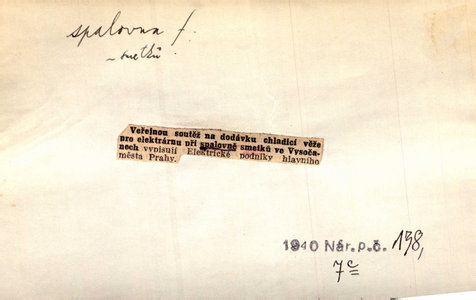 spalovna f.
~ smetků
Veřejnou soutěž na dodávku chladicí věže
pro elektrárnu při spalovně smetků ve Vysoča-
nech vypisují Elektrické podniky hlavního
města Prahy.
1940 Nár. p. č. 198,
7c